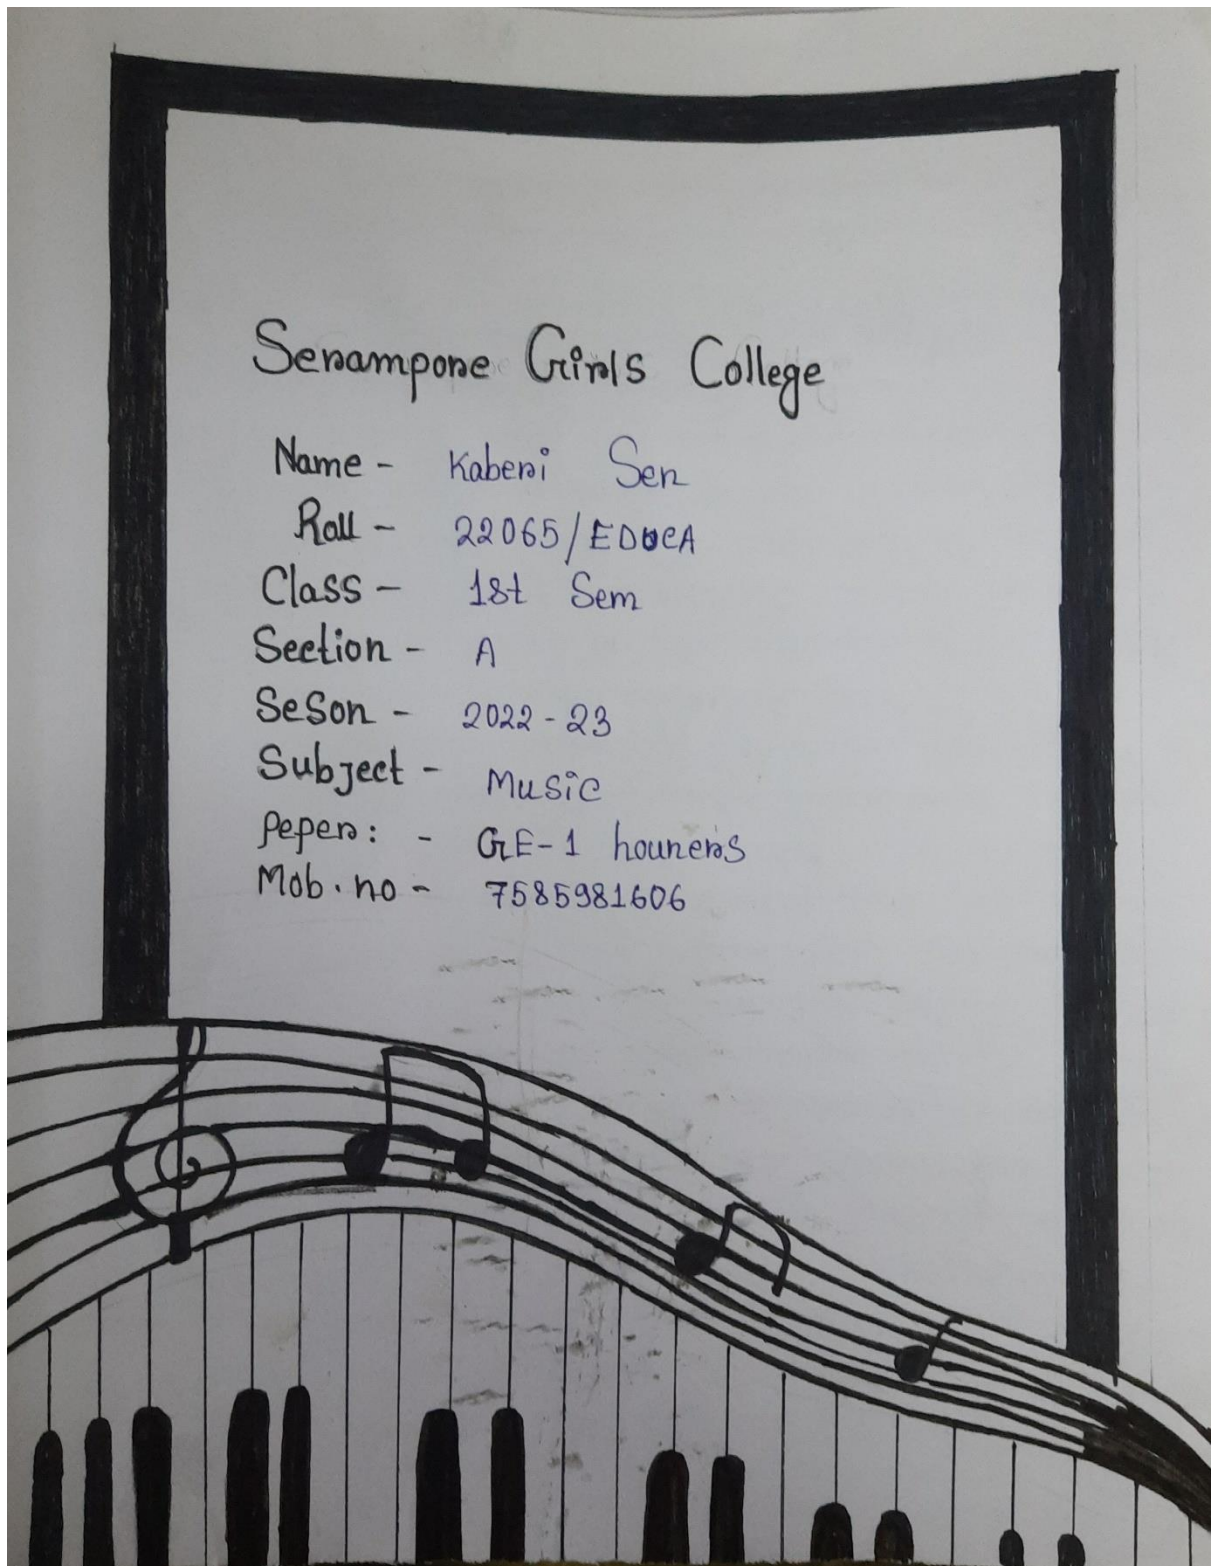 Serampore Girls College
Name - Kaberi Sen
Roll - 22065/EDUCA
Class - 1st Sem
Section - A
SeSon - 2022-23
Subject - Music
Peper: - GE-1 houners
Mob. no - 7585981606